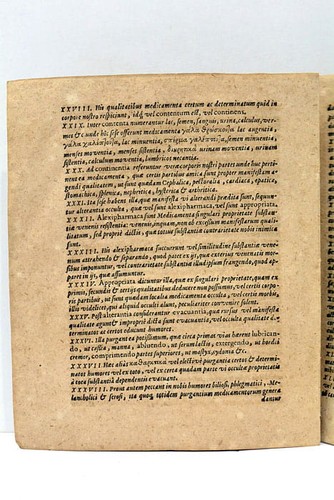 XXVIII. His qualitatibus medicamenta certum ac determinatum quid in
corpore nostro respiciunt, idq; vel contentum est, vel continens.
XXIX. Inter contenta numerantur lac, semen, sanguis, urina, calculus, ver-
mes & unde his sese offerunt medicamenta lac augentia,
lac minuentia, semen
minuentia, menses sistentia, urinam moventia, urinam
sistentia, calculum moventia, lumbricos necantia.
XXX. Ad continentia referuntur corporis nostri partes unde huc perti-
nent ea medicamenta, quæ certis partibus amica sunt proper manifestam a-
gendi qualitatem, ut sunt quædam Cephalica, pectoralia, cardiaca, epatica,
stomachica, splenica, nephritica, hysterica & arthritica.
XXXI. Ita sese habent illa, quæ manifesta vi alterandi prædita sunt, sequun-
tur alterantia occulta, quæ sunt vel alexipharmaca, vel sunt appropriata.
XXXII. Alexipharmaca sunt Medicamenta singulari proprietate substan-
tiæ venenis resistentia: venenis resistunt, non quatenus substantia, non quatenus
sed propriè dicti, quæ totius substantiæ contrarietate nobis inimica
sunt.
XXXIII. His alexipharmaca succurrunt vel similitudine substantiæ vene-
num attrahendo & separando, quod patet ex ijs, quæ exterius venenatis mor-
sibus imponuntur, vel contrarietate substantiæ illud ipsum frangendo, quod ap-
paret in ijs, quæ assumuntur.
XXXIV. Appropriata dicuntur illa, quæ ex singulari proprietate, quam ex
primis, secundis & tertijs qualitatibus deducere non possumus, vel certis corpo-
ris partibus, ut sunt quædam localia medicamenta occulta, vel certis morbis,
illis videlicet, qui aliquid occulti obtinent, conferunt & medentur.
XXXV. Post alterantia considerantur evacuantia, quæ rursus vel manifesta
qualitate agunt & improprie dicta sunt evacuantia, vel occulta qualitate de-
terminatum ac certum educunt humorem.
XXXVI. Illa purgant ea potissimum, quæ circa primas vias hærent lubrican-
do, ut cassia, manna, abluendo, ut serum lactis, extergendo, ut herba
cremor, comprimendo partes superiores, ut mastyx, cydonia &c.
XXXVII. Hæc aliàs vel electivè purgantia certos & determi-
natos humores vel ex toto, vel ex certa quadam parte vi occulta proprietatis
à tota substantia dependenti evacuant.
XXXVIII. Prout autem peccant in nobis humores biliosi, phlegmatici, Me-
lancholici & serosi, ita quoq; totidem purgantium medicamentorum genera
dantur